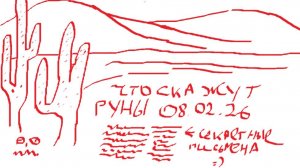 ЧТО СКАЖУТ
РУНЫ 08.02.26
← СЕКРЕТНЫЕ
ПИСЬМЕНА
=)